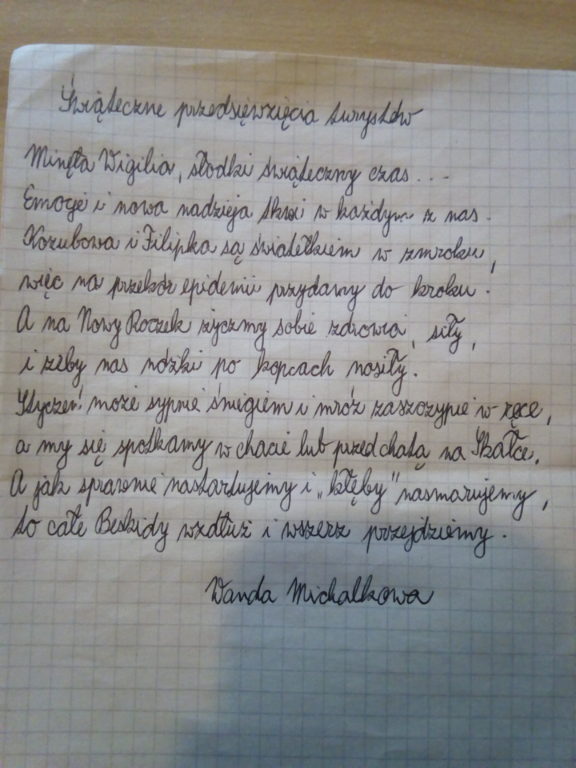 Świąteczne przedsięwzięcia turystów
Minęła Wigilia, słodki świąteczny czas...
Emocje i nowa nadzieja tkwi w każdym z nas.
Kozubowa i Filipka są światełkiem w zmroku,
więc na przekór epidemii przydamy do kroku.
A na Nowy Roczek życzmy sobie zdrowia, siły,
i żeby nas nóżki po kopcach nosiły.
Styczeń może sypnie śniegiem i mróz zaszczypie w ręce,
a my się spotkamy w chacie lub przed chatą na Skałce.
A jak sprawnie nastartujemy i „kłęby" nasmarujemy,
to całe Beskidy wzdłuż i wszerz przejdziemy.
Wanda Michalkowa